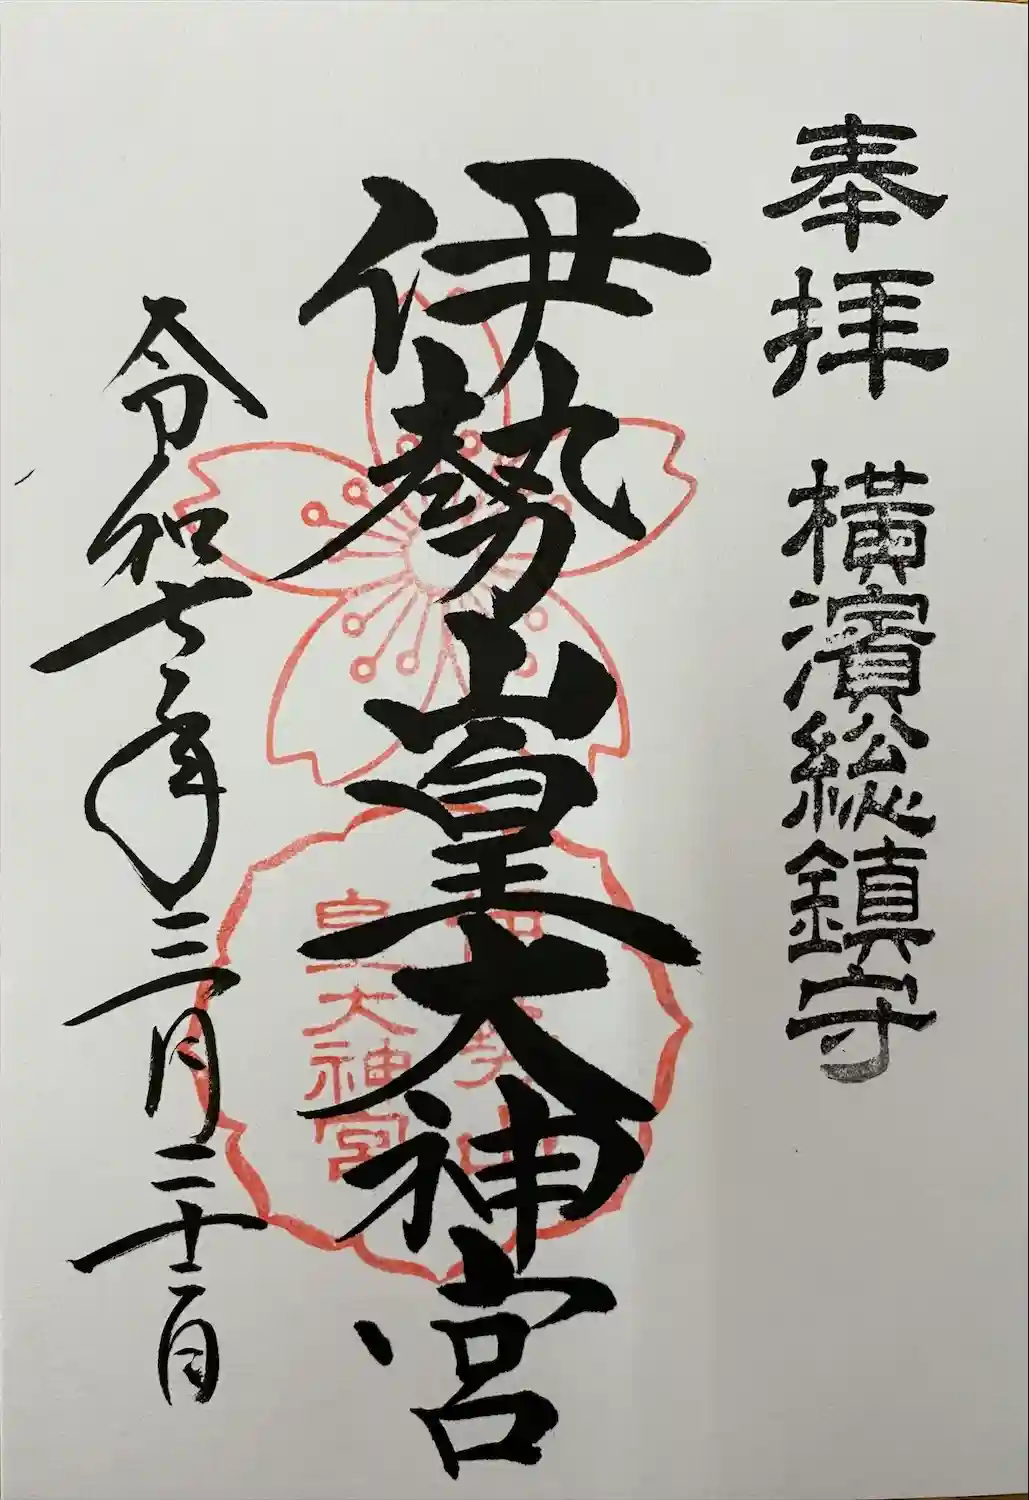 奉拝 横濱総鎮守
伊勢山皇大神宮
伊勢山
皇大神宮
令和七年三月二十二日